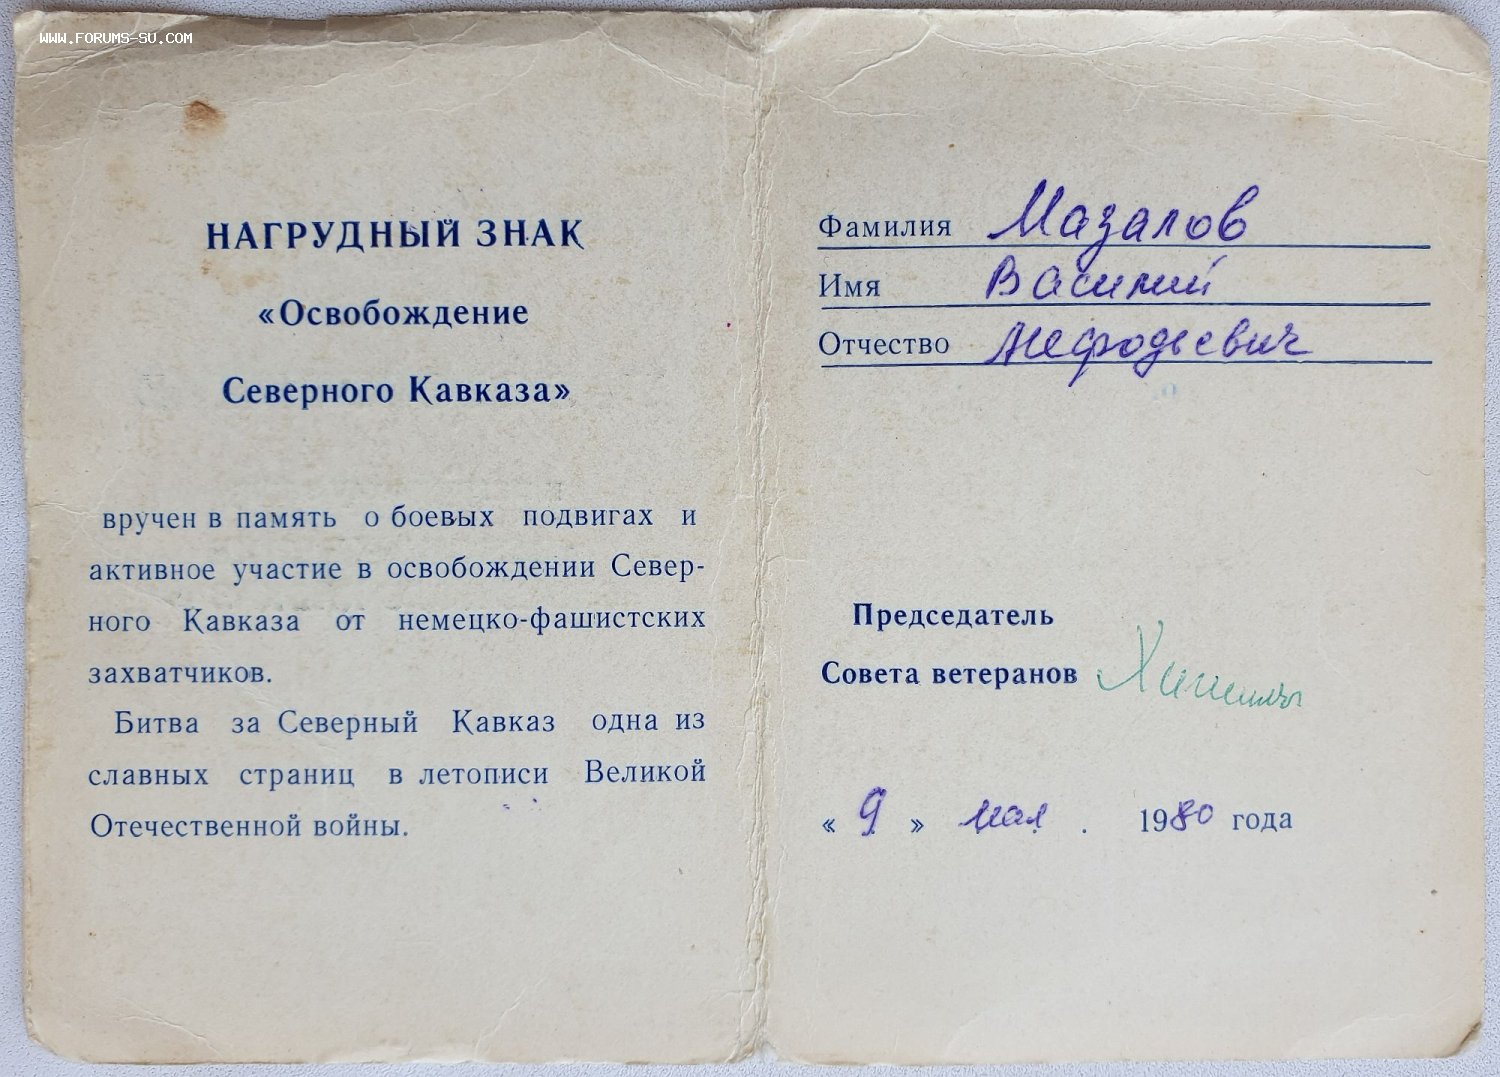 WWW.FORUMS-SU.COM
НАГРУДНЫЙ ЗНАК
«Освобождение
Северного Кавказа»
вручен в память о боевых подвигах и
активное участие в освобождении Север-
ного Кавказа от немецко-фашистских
захватчиков.
Битва за Северный Кавказ одна из
славных страниц в летописи Великой
Отечественной войны.
Фамилия Мазалов
Имя Василий
Отчество Мефодьевич
Председатель
Совета ветеранов
« 9 » мая . 1980 года